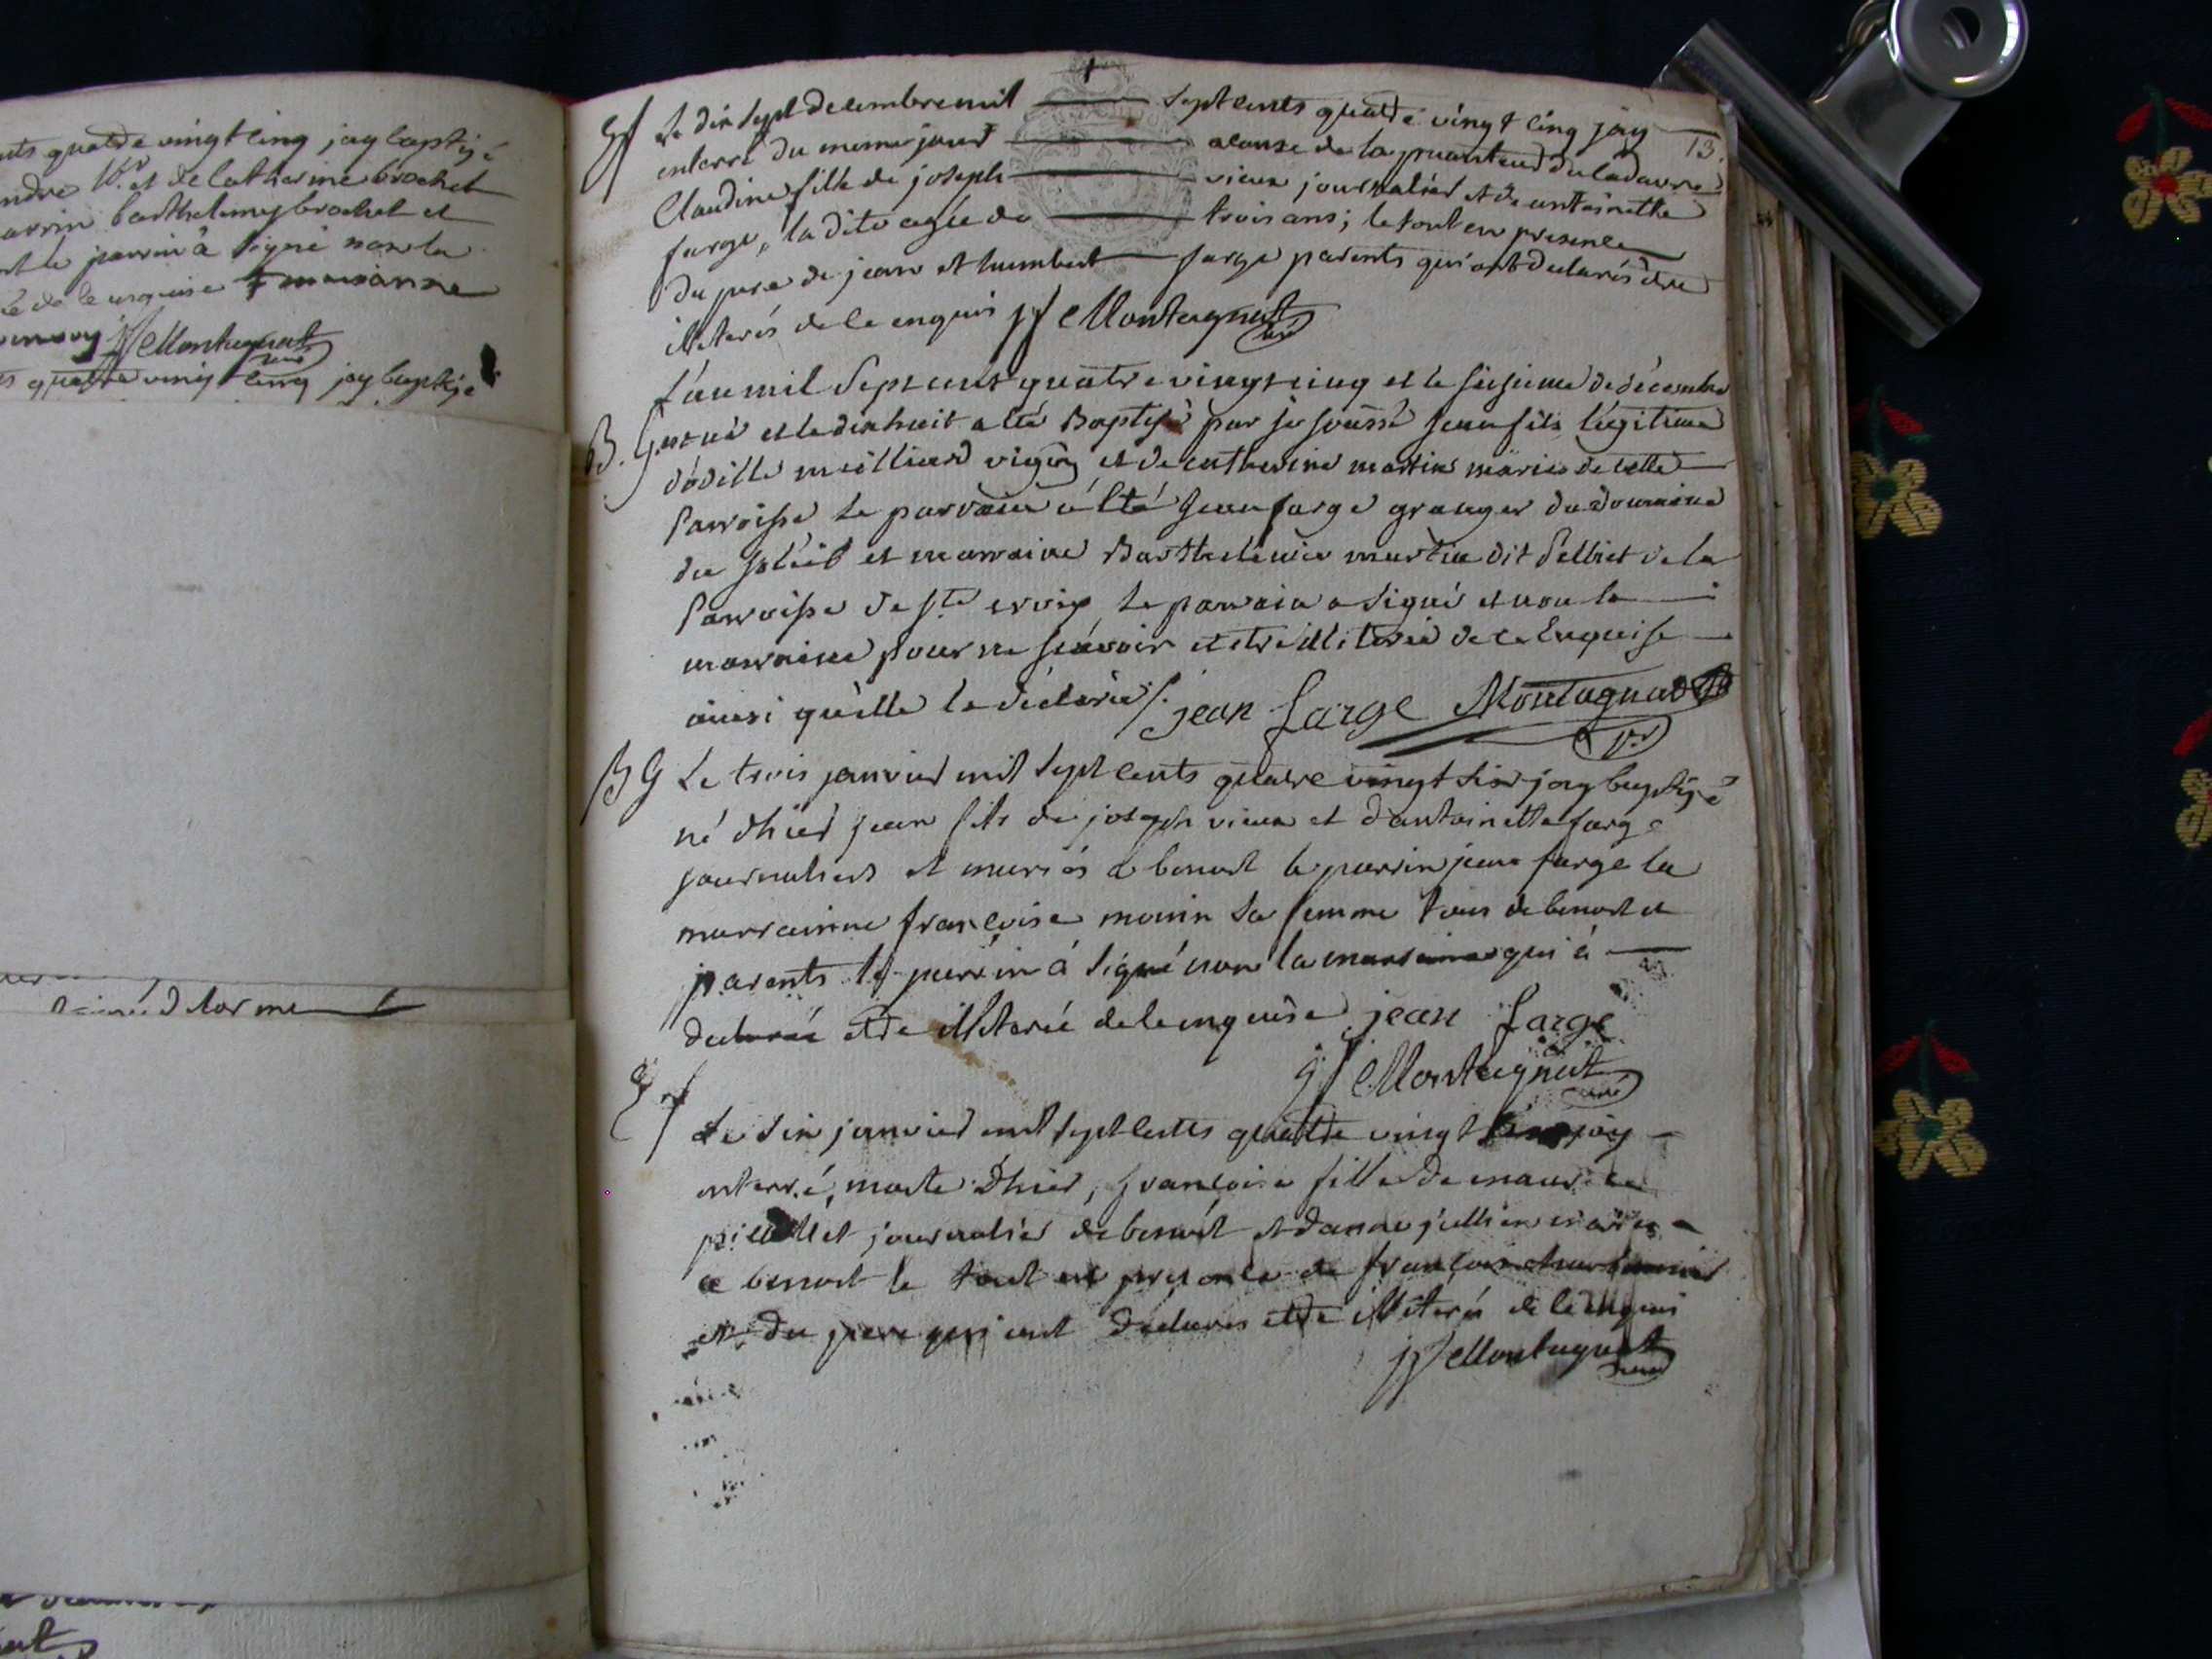 nts quatre vingt cinq jay baptizé
ndre et de catherine brochet
arrin barthelemy brochet et
nt le parrin à signé non la
de ce enquise marianne
Montagnat
curé
quatre vingt cinq jay baptizé
signé delorme
13.
Le dix sept decembre mil sept cents quatre vingt cinq jay
enterré du meme jour a cause de la puanteur du cadavre
Claudine fille de joseph vieux journalier et de antoinette
farge, la dite agée de trois ans; le tout en presence
du pere de jean et humbert farge parents qui ont declarés etre
illiterés de ce enquis jf Montagnat
curé
L'an mil sept cent quatre vingt cinq et le de décembre
B. G. est né et le dix huit a été Baptisé par je soussé jean fils légitime
d'odille meilliard vigon et de catherine martin mariés de cette
Parroisse le parrain a été Jean farge granger du domaine
du Soleil et marraine Barthelemie martin dit Pelliet de la
Parroisse de Ste croix le parrain a signé et non la
marraine pour ne sçavoir et etre illiterée de ce Enquise
ainsi qu'elle la déclaré /. jean farge Montagnat
B G Le trois janvier mil sept cents quatre vingt six jay baptizé
né d'hier jean fils de joseph vieux et d'antoinette farge
journaliers et mariés a benost le parrin jean farge la
marrainne françoise monin sa femme tous de benost et
parents le parrin à signé non la marraine qui à
declarée etre illiterée de ce enquise jean farge
jf Montagnat
curé
Le six janvier mil sept cents quatre vingt six jay
enterré, morte d'hier, françoise fille de maurice
journalier de benost et d'anne jullien mariés
a benost le tout en presence de françois
et du pere qui ont declarés etre illiterés de ce enquis
jf Montagnat
curé